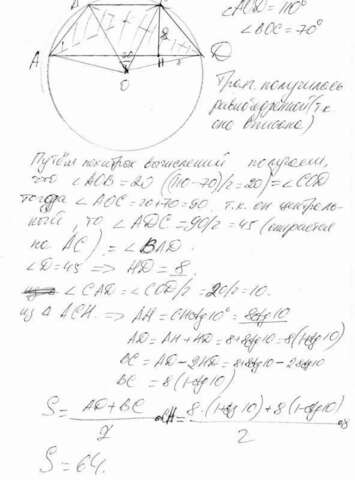 ∠AOD = 110°
∠BOC = 70°
A
D
O
H
8
20
Трап. получилась
равнобедренной (т.к.
она вписана)
Путём нехитрых вычислений получаем,
что ∠AOB = 20 (110-70)/2 = 20) = ∠COD
тогда ∠AOC = 20+70 = 90. т.к. он централь-
ный, то ∠ADC = 90/2 = 45 (опирается
на AC) = ∠BAD.
∠D = 45 => HD = 8.
∠CAD = ∠COD/2 = 20/2 = 10.
из Δ ACH. => AH = CH ctg 10° = 8ctg 10
AD = AH + HD = 8+8ctg 10 = 8(1+ctg 10)
BC = AD - 2HD = 8+8ctg 10 -
BC = 8(1-ctg 10)
S = AD+BC / 2 · CH = 8·(1+ctg 10)+8(1-ctg 10) / 2 ·8
S = 64.